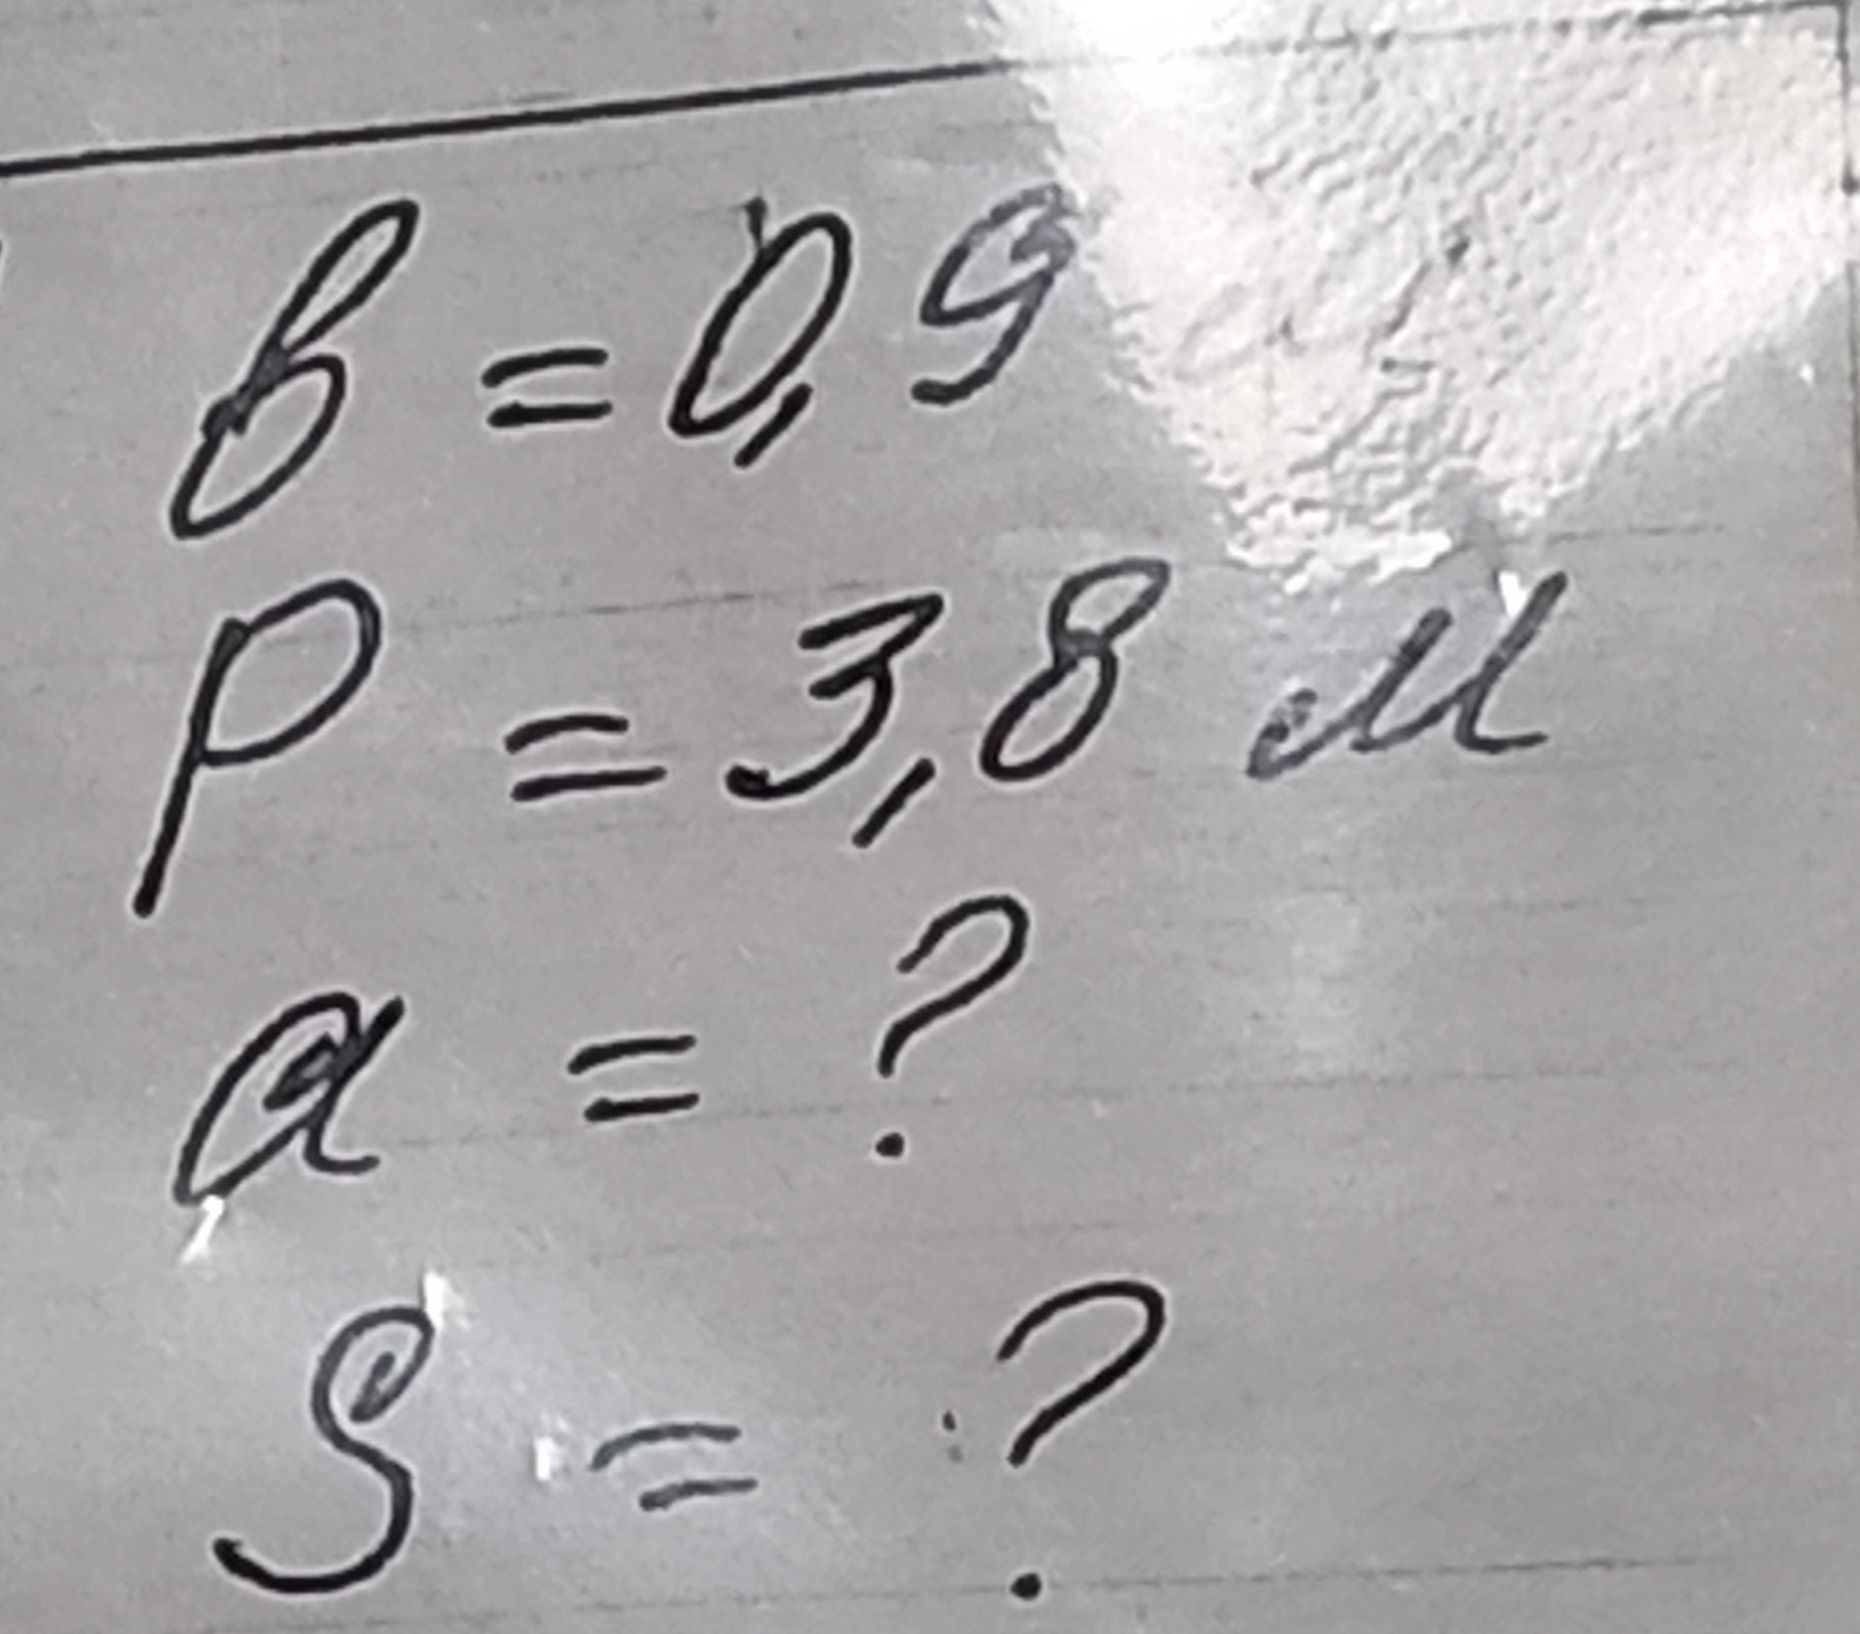 в = 0,9
P = 3,8 м
a = ?
S = ?